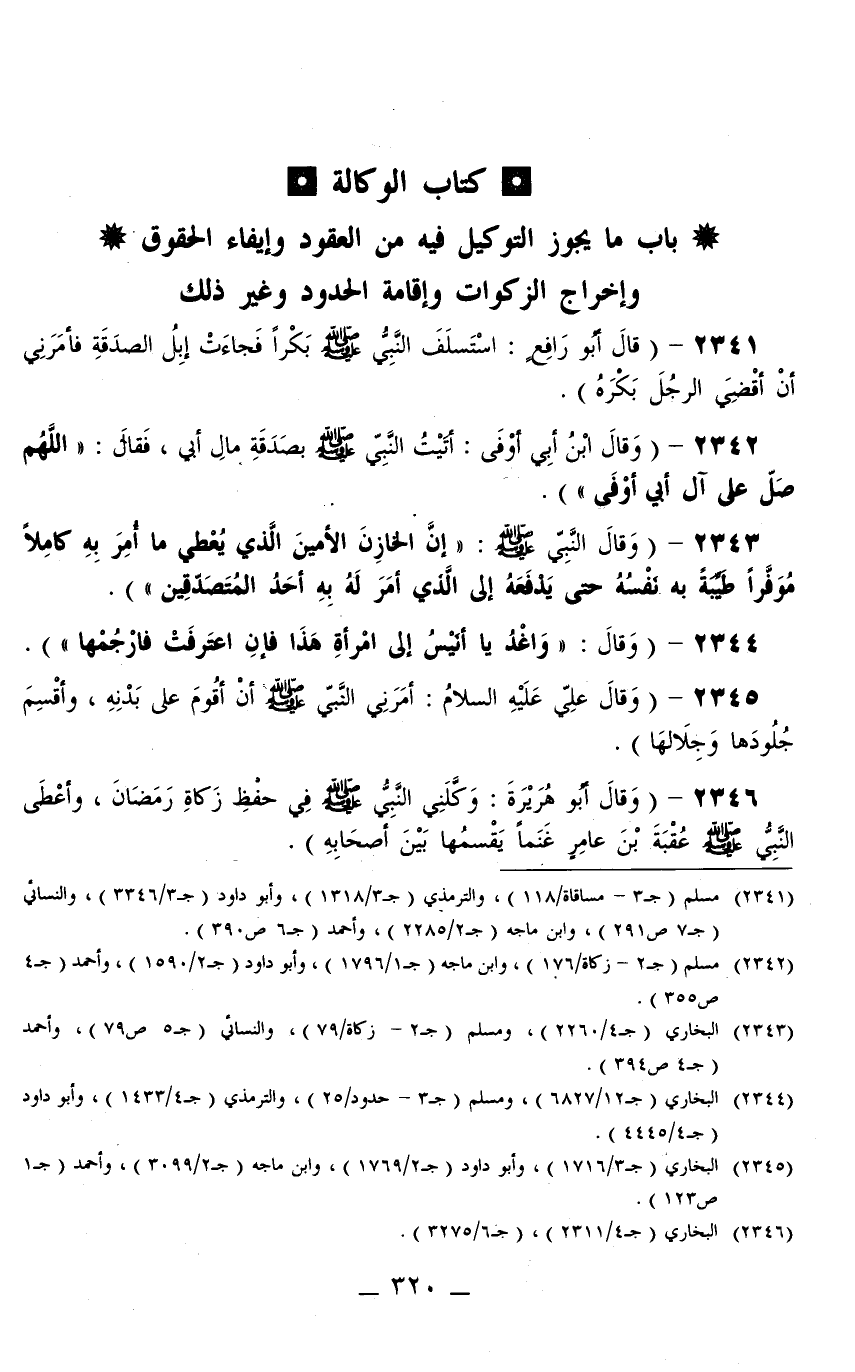 كتاب الوكالة
باب ما يجوز التوكيل فيه من العقود وإيفاء الحقوق
وإخراج الزكوات وإقامة الحدود وغير ذلك
٢٣٤١ – ( قالَ أَبُو رَافِعٍ : اسْتَسلَفَ النَّبيُّ ﷺ بَكْراً فَجاءَتْ إبِلُ الصدَقَةِ فأمَرَنِي
أنْ أقْضِيَ الرجُلَ بَكْرَهُ ) .
٢٣٤٢ – ( وَقالَ ابْنُ أَبِي أوْفَى : أتَيْتُ النَّبِيّ ﷺ بصَدَقَةِ مالِ أبي ، فَقالَ : « اللَّهُم
صَلّ على آل أبي أوْفَى » ) .
٢٣٤٣ – ( وَقالَ النَّبِيّ ﷺ : « إنَّ الخازِنَ الأمينَ الَّذي يُعْطي ما أُمِرَ بِهِ كامِلاً
مُوَفَّراً طَيِّبَةً به نَفْسُهُ حتى يَدْفَعَهُ إلى الَّذي أمَرَ لَهُ بِهِ أحَدُ المُتَصَدّقِين » ) .
٢٣٤٤ – ( وَقالَ : « وَاغْدُ يا أنَيْسُ إلى امْرأةِ هَذَا فإنِ اعتَرفَتْ فارْجُمْها » ) .
٢٣٤٥ – ( وَقالَ علِيّ عَلَيْهِ السلامُ : أمَرَنِي النَّبِيّ ﷺ أنْ أقُومَ على بَدْنِهِ ، وأقْسِمَ
جُلُودَها وَجِلَالهَا ) .
٢٣٤٦ – ( وَقالَ أَبُو هُرَيْرَةَ : وَكَّلَنِي النَّبِيُّ ﷺ فِي حفْظِ زَكاةِ رَمَضَانَ ، وأعْطَى
النَّبِيُّ ﷺ عُقْبَةَ بْنَ عامِرٍ غَنَماً يَقْسمُها بَيْنَ أصحَابِهِ ) .
(٢٣٤١) مسلم ( جـ٣ – مساقاة/١١٨ ) ، والترمذي ( جـ٣/١٣١٨ ) ، وأبو داود ( جـ٣/٣٣٤٦ ) ، والنسائي
( جـ٧ ص٢٩١ ) ، وابن ماجه ( جـ٢/٢٢٨٥ ) ، وأحمد ( جـ٦ ص٣٩٠ ) .
(٢٣٤٢) مسلم ( جـ٢ – زكاة/١٧٦ ) ، وابن ماجه ( جـ١/١٧٩٦ ) ، وأبو داود ( جـ٢/١٥٩٠ ) ، وأحمد ( جـ٤
ص٣٥٥ ) .
(٢٣٤٣) البخاري ( جـ٤/٢٢٦٠ ) ، ومسلم ( جـ٢ – زكاة/٧٩ ) ، والنسائي ( جـ٥ ص٧٩ ) ، وأحمد
( جـ٤ ص٣٩٤ ) .
(٢٣٤٤) البخاري ( جـ١٢/٦٨٢٧ ) ، ومسلم ( جـ٣ – حدود/٢٥ ) ، والترمذي ( جـ٤/١٤٣٣ ) ، وأبو داود
( جـ٤/٤٤٤٥ ) .
(٢٣٤٥) البخاري ( جـ٣/١٧١٦ ) ، وأبو داود ( جـ٢/١٧٦٩ ) ، وابن ماجه ( جـ٢/٣٠٩٩ ) ، وأحمد ( جـ١
ص١٢٣ ) .
(٢٣٤٦) البخاري ( جـ٤/٢٣١١ ) ، ( جـ٦/٣٢٧٥ ) .
– ٣٢٠ –